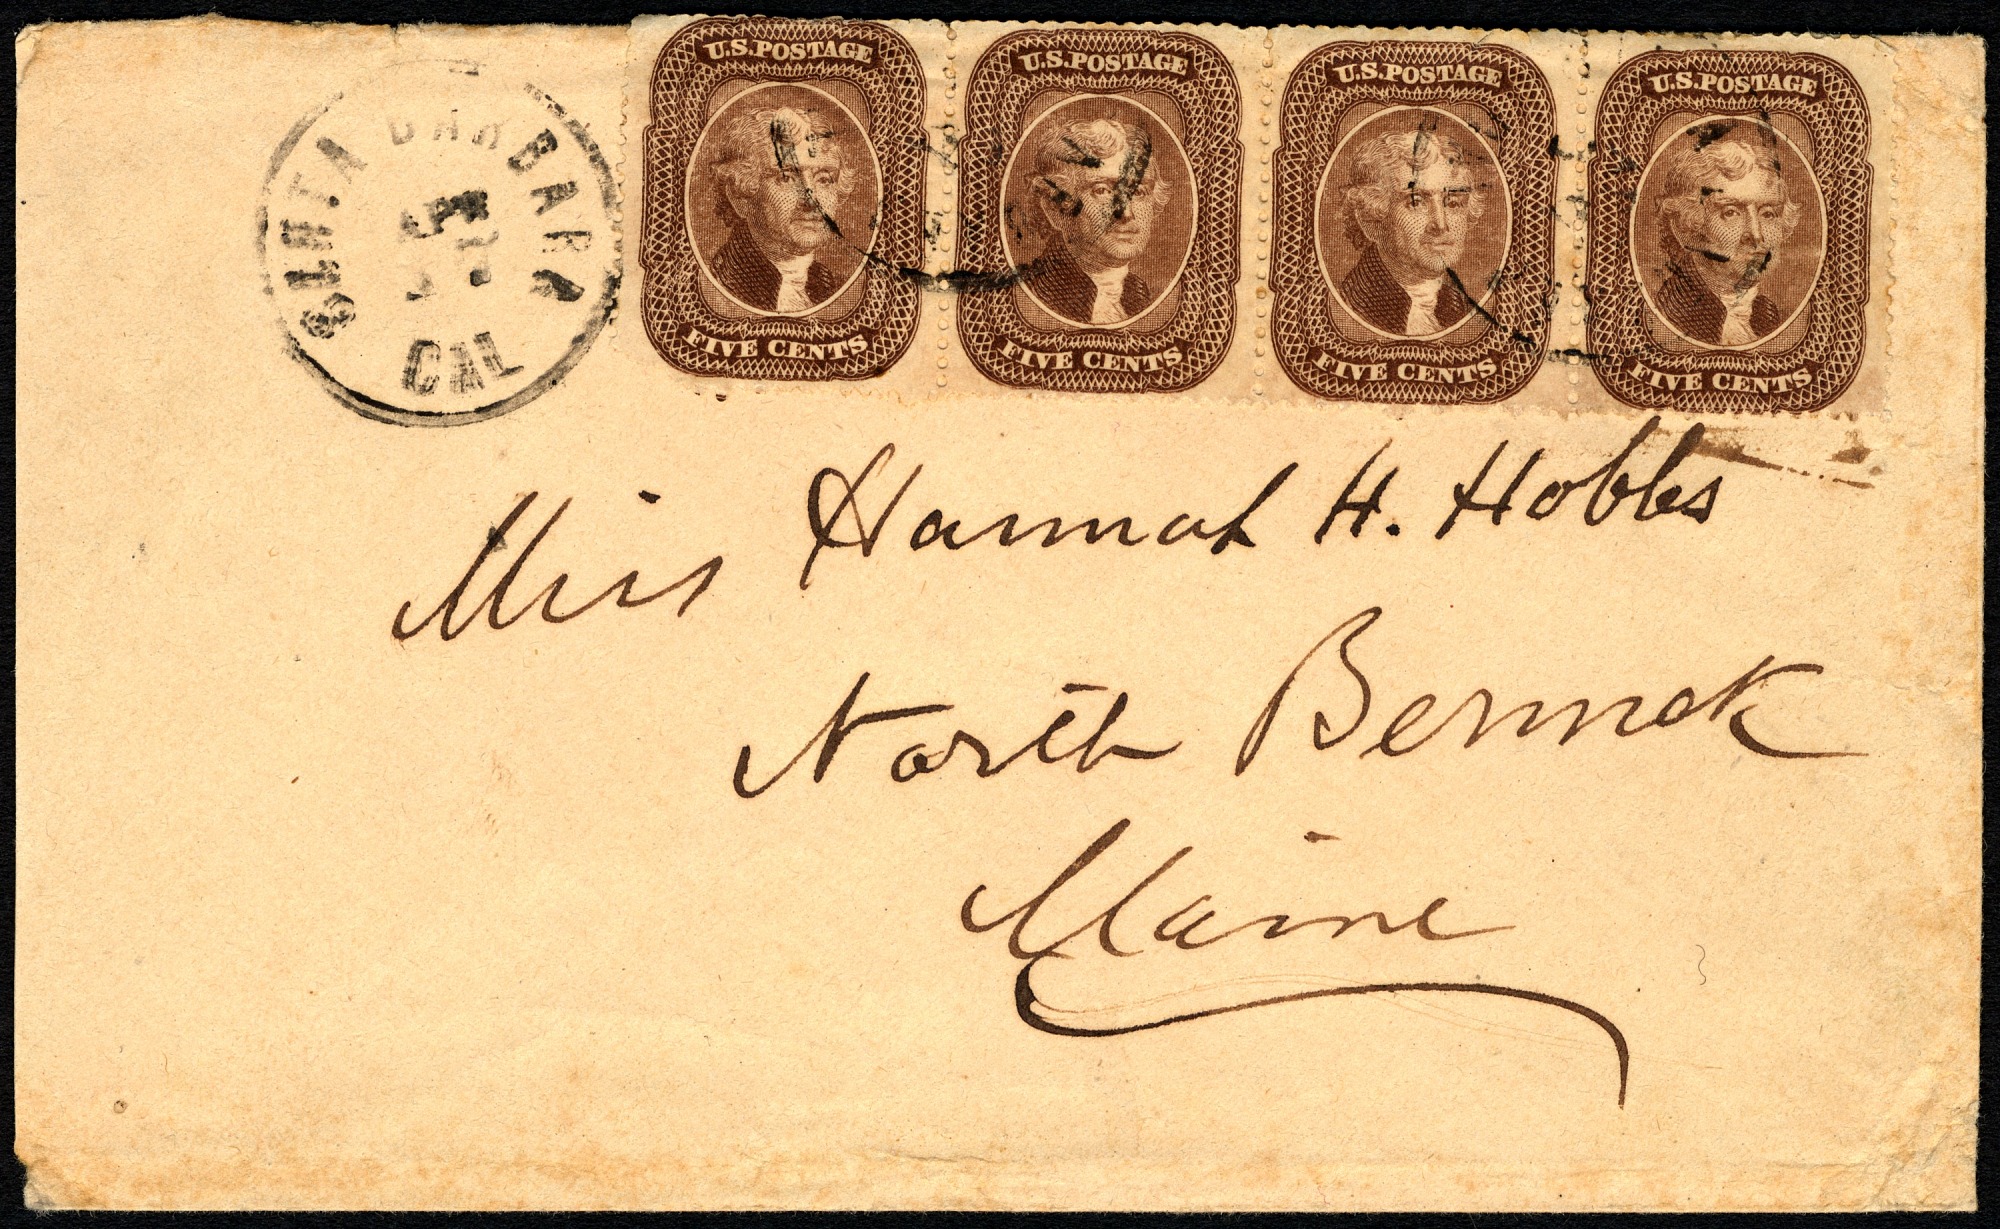 SANTA BARBARA
CAL
U.S. POSTAGE
FIVE CENTS
U.S. POSTAGE
FIVE CENTS
U.S. POSTAGE
FIVE CENTS
U.S. POSTAGE
FIVE CENTS
Miss Hannah H. Hobbs
North Berwick
Maine